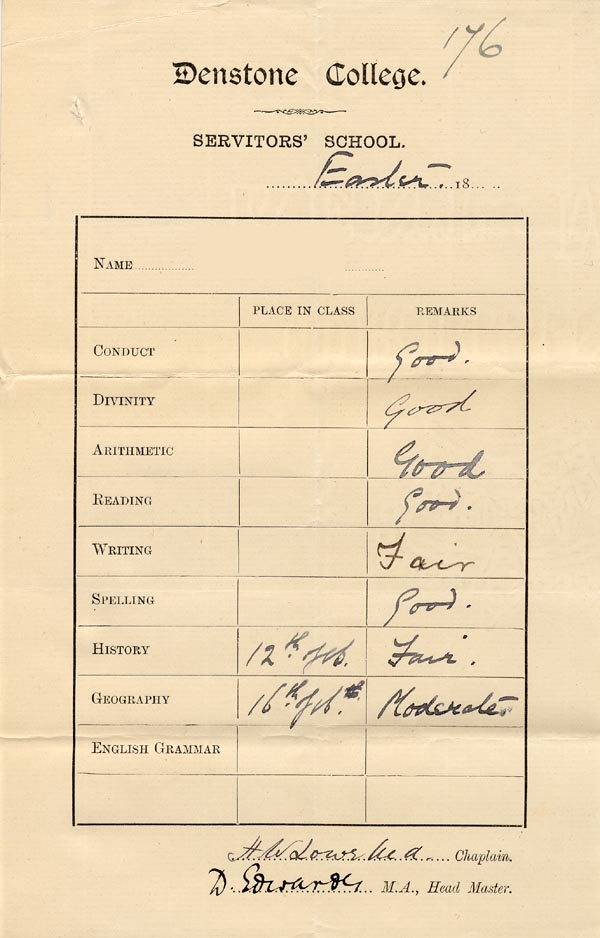 176
Denstone College.
SERVITORS' SCHOOL.
Easter. 18
NAME
PLACE IN CLASS REMARKS
CONDUCT Good.
DIVINITY Good
ARITHMETIC Good
READING Good.
WRITING Fair
SPELLING Good.
HISTORY 12th of Fair.
GEOGRAPHY 16th of Moderate
ENGLISH GRAMMAR
Chaplain.
D. Edwardes M.A., Head Master.